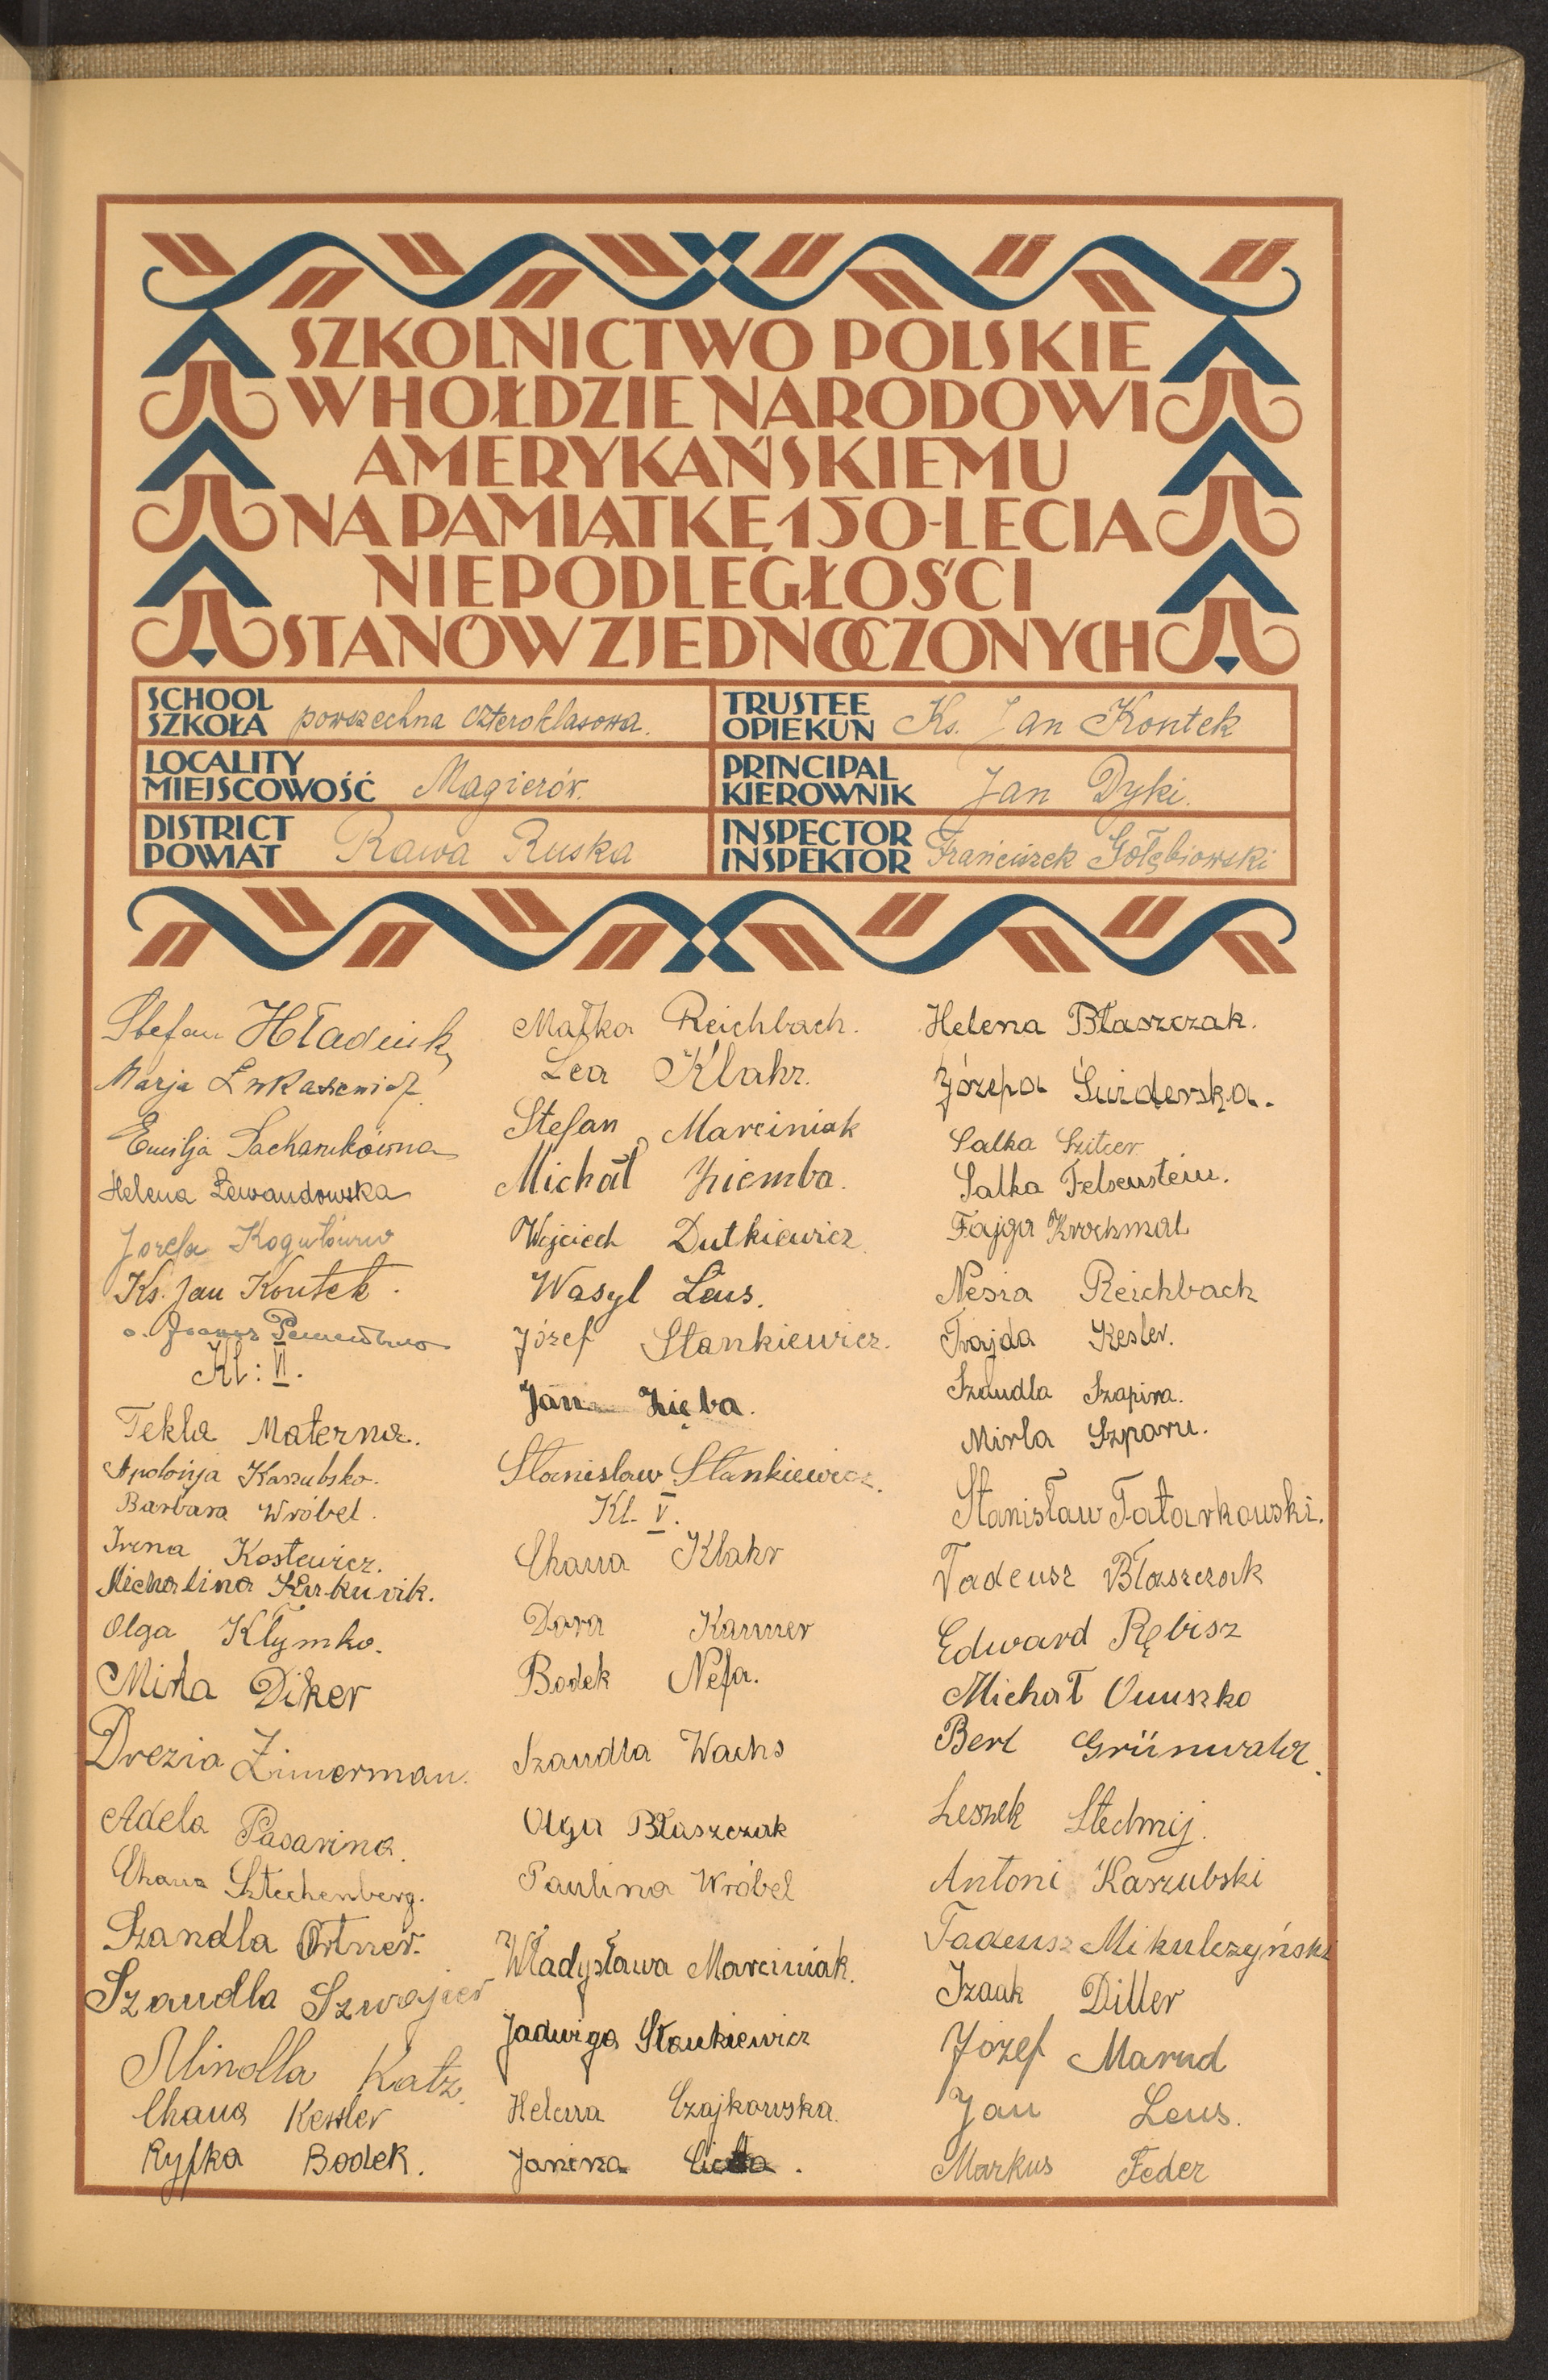 SZKOLNICTWO POLSKIE
W HOŁDZIE NARODOWI
AMERYKAŃSKIEMU
NA PAMIĄTKĘ 150-LECIA
NIEPODLEGŁOŚCI
STANÓW ZJEDNOCZONYCH
SCHOOL
SZKOŁA powszechna czteroklasowa.
TRUSTEE
OPIEKUN Ks. Jan Kontek
LOCALITY
MIEJSCOWOŚĆ Magierów.
PRINCIPAL
KIEROWNIK Jan Dyki.
DISTRICT
POWIAT Rawa Ruska
INSPECTOR
INSPEKTOR Franciszek Gołębiowski
Stefan
Marja
Emilja
Helena Lewandowska
Józefa
Ks. Jan Kontek.
Kl: VI.
Tekla Materna.
Apolonja Kaszubska.
Barbara Wróbel.
Irena Kostewicz.
Michalina
Olga Kłymko.
Mirla Diker
Drezia Zimerman.
Adela
Chana Sztechenberg.
Szandla Ortner.
Szandla Szwajcer
Katz.
Chana Kessler
Ryfka Bodek.
Małka Reichbach.
Lea Klahr.
Stefan Marciniak
Michał Ziemba.
Wojciech Dutkiewicz
Wasyl Leus.
Józef Stankiewicz.
Jan Zięba.
Stanisław Stankiewicz.
Kl. V.
Chana Klahr
Dora
Bodek Nefa.
Szandla Wachs
Olga Błaszczak
Paulina Wróbel
Władysława Marciniak.
Jadwiga Stankiewicz
Helena Czajkowska.
Janina
Helena Błaszczak.
Józefa
Salka Szitcer
Salka Felsenstein.
Fajga Krochmal
Nesia Reichbach
Kesler.
Szandla Szapira.
Mirla
Stanisław Tatarkowski.
Tadeusz Błaszczak
Edward Rębisz
Michał Onuszko
Berl
Leszek
Antoni Kaszubski
Tadeusz Mikulczyński
Izaak Diller
Józef Marud
Jan Leus.
Markus Feder